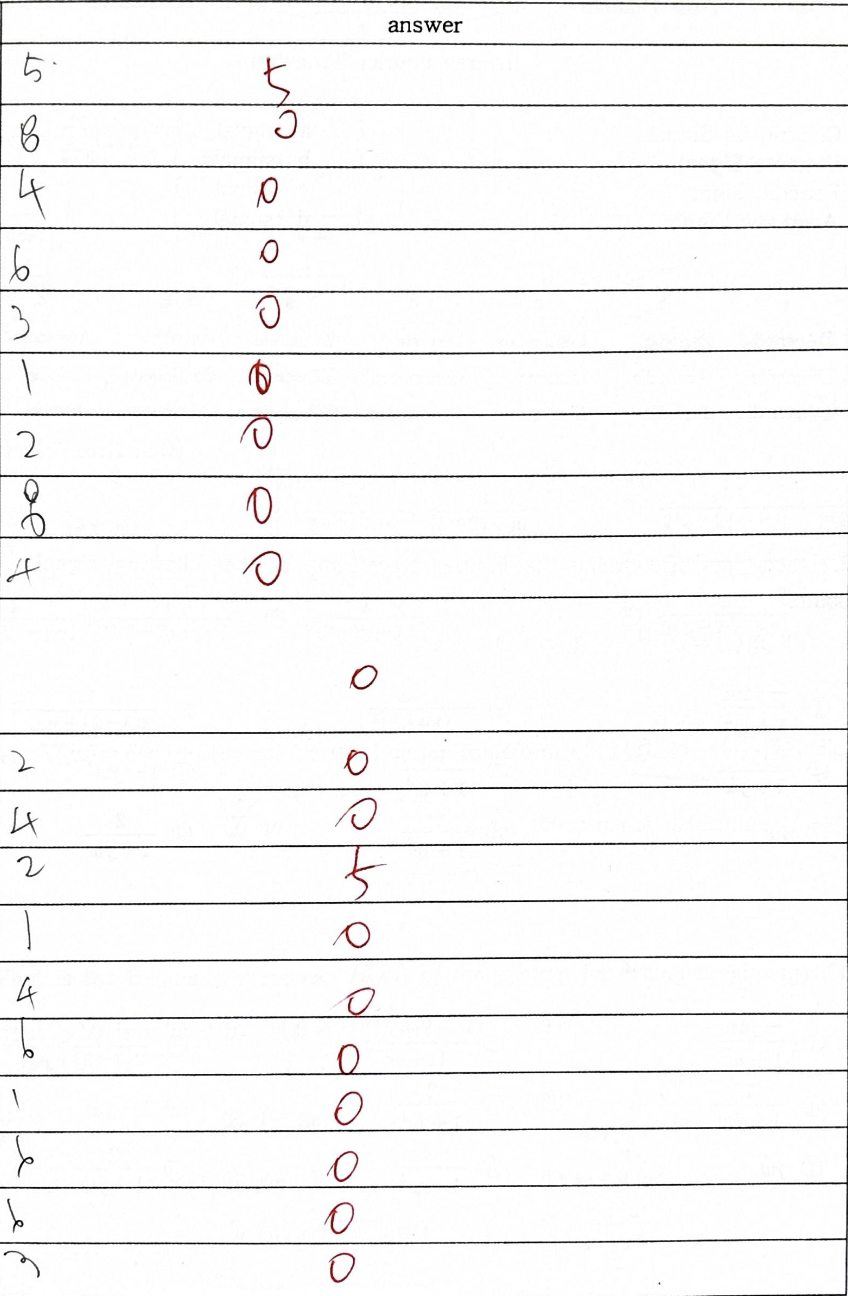 answer
5 5
8 0
4 0
6 0
3 0
1 0
2 0
8 0
4 0
0
2 0
4 0
2 5
1 0
4 0
6 0
1 0
6 0
6 0
3 0